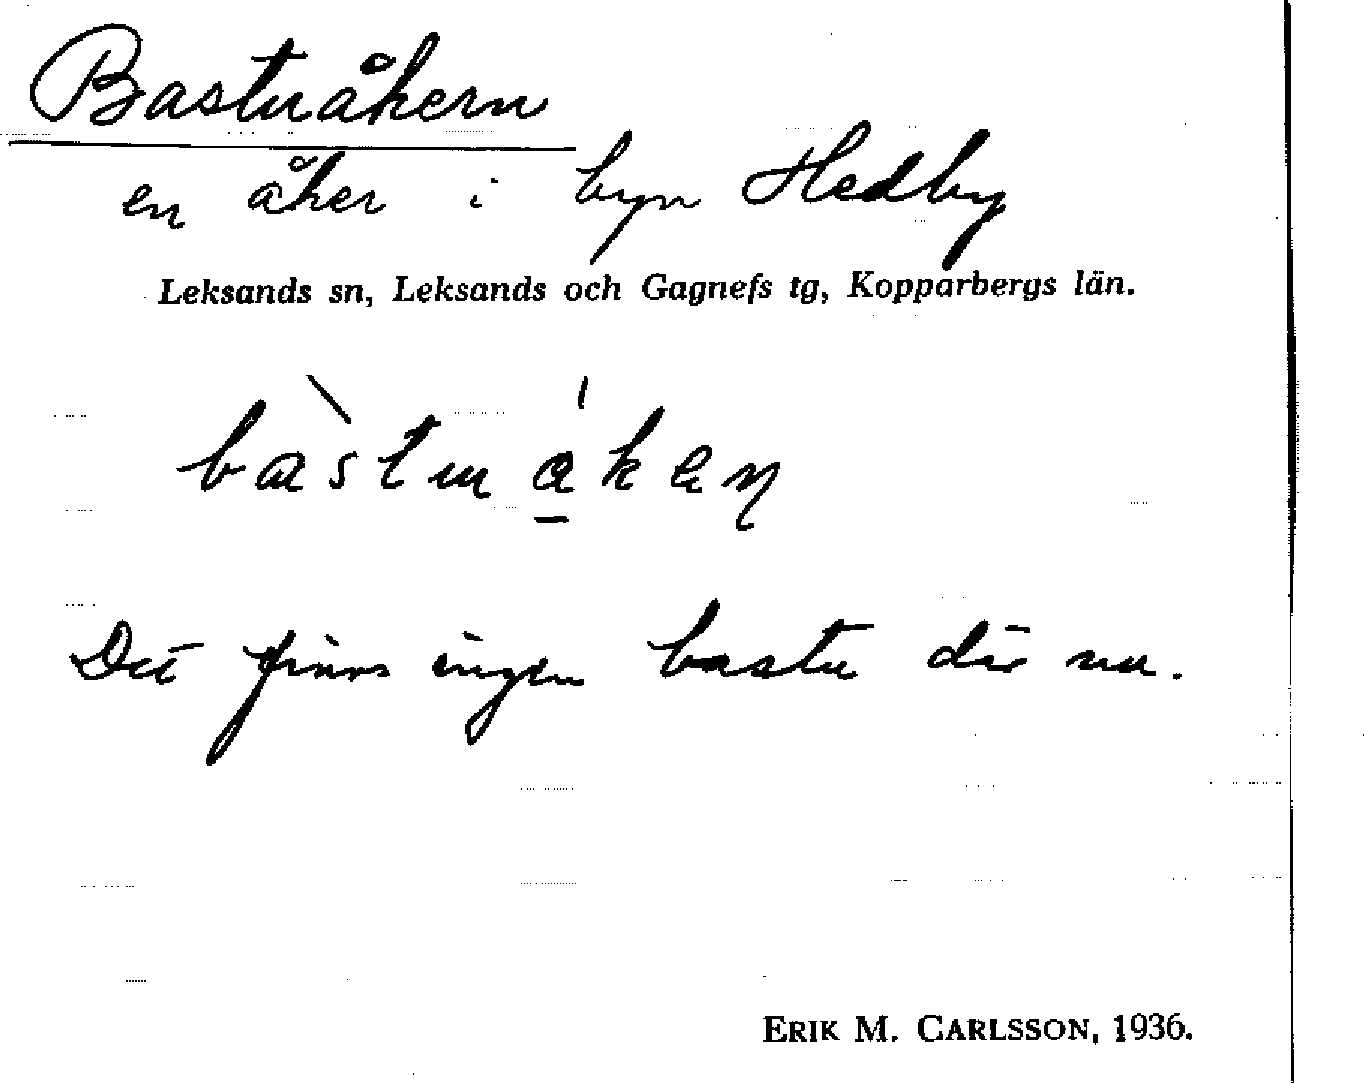 Bastuåkern
en åker i byn Hedby
Leksands sn, Leksands och Gagnefs tg, Kopparbergs län.
Det finns ingen bastu där nu.
ERIK M. CARLSSON, 1936.